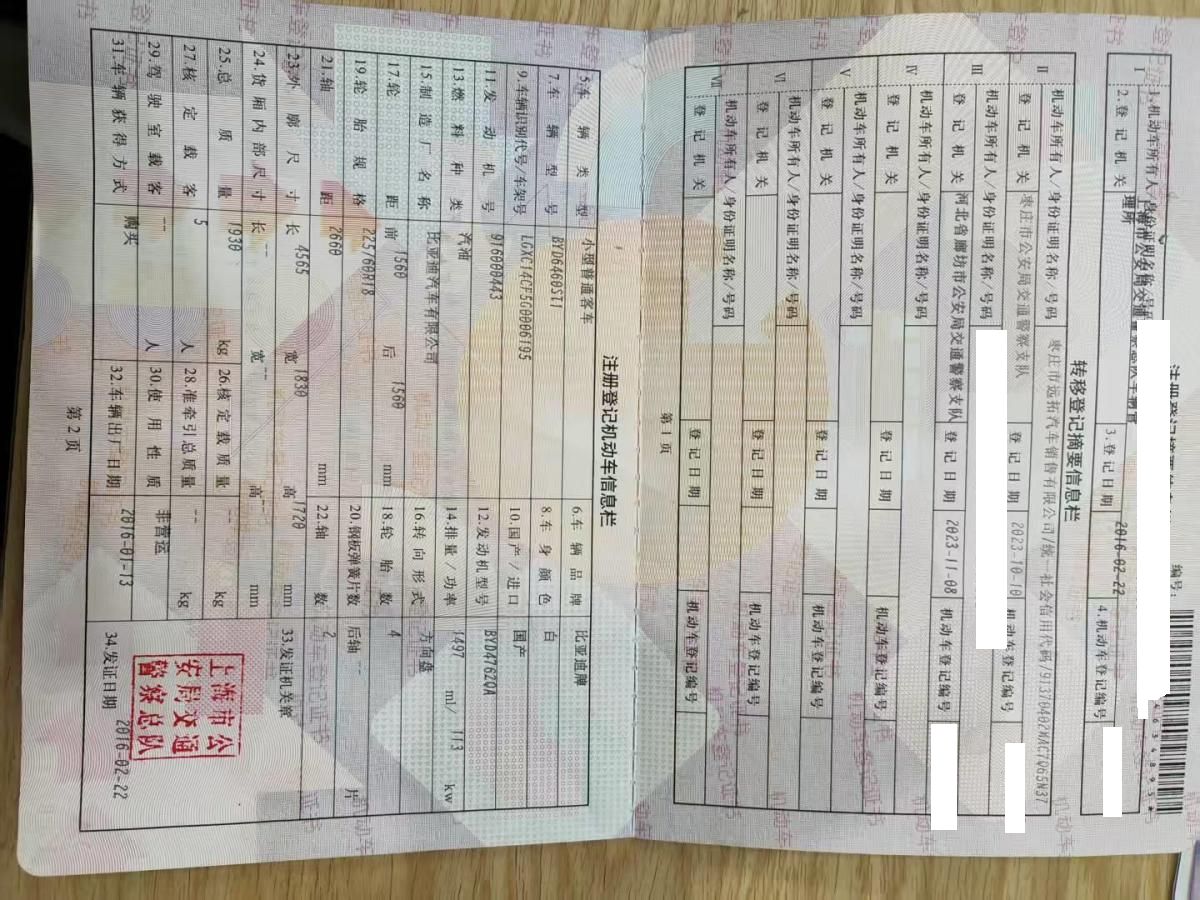 注册登记摘要信息栏
编号:
Ⅰ
1.机动车所有人/身份证明名称/号码
2.登记机关
3.登记日期
2016-02-22
4.机动车登记编号
转移登记摘要信息栏
Ⅱ
机动车所有人/身份证明名称/号码
枣庄市远拓汽车销售有限公司/统一社会信用代码/91370402MAC7Q65N37
登记机关
枣庄市公安局交通警察支队
登记日期
2023-10-10
机动车登记编号
Ⅲ
机动车所有人/身份证明名称/号码
登记机关
河北省廊坊市公安局交通警察支队
登记日期
2023-11-08
机动车登记编号
Ⅳ
机动车所有人/身份证明名称/号码
登记机关
登记日期
机动车登记编号
Ⅴ
机动车所有人/身份证明名称/号码
登记机关
登记日期
机动车登记编号
Ⅵ
机动车所有人/身份证明名称/号码
登记机关
登记日期
机动车登记编号
Ⅶ
机动车所有人/身份证明名称/号码
登记机关
登记日期
机动车登记编号
第1页
注册登记机动车信息栏
5.车辆类型 小型普通客车 6.车辆品牌 比亚迪牌
7.车辆型号 BYD6460ST1 8.车身颜色 白
9.车辆识别代号/车架号 LGXC14CF5G0006195 10.国产/进口 国产
11.发动机号 916000443 12.发动机型号 BYD476ZQA
13.燃料种类 汽油 14.排量/功率 1497 ml/ 113 kw
15.制造厂名称 比亚迪汽车有限公司 16.转向形式 方向盘
17.轮距 前 1560 后 1560 mm 18.轮胎数 4
19.轮胎规格 225/60R18 20.钢板弹簧片数 后轴 -- 片
21.轴距 2660 mm 22.轴数 2
23.外廓尺寸 长 4565 宽 1830 高 1720 mm 33.发证机关章
24.货厢内部尺寸 长 -- 宽 -- 高 -- mm
25.总质量 1930 kg 26.核定载质量 -- kg
27.核定载客 5 人 28.准牵引总质量 -- kg
29.驾驶室载客 -- 人 30.使用性质 非营运
31.车辆获得方式 购买 32.车辆出厂日期 2016-01-13 34.发证日期 2016-02-22
上海市公
安局交通
警察总队
第2页